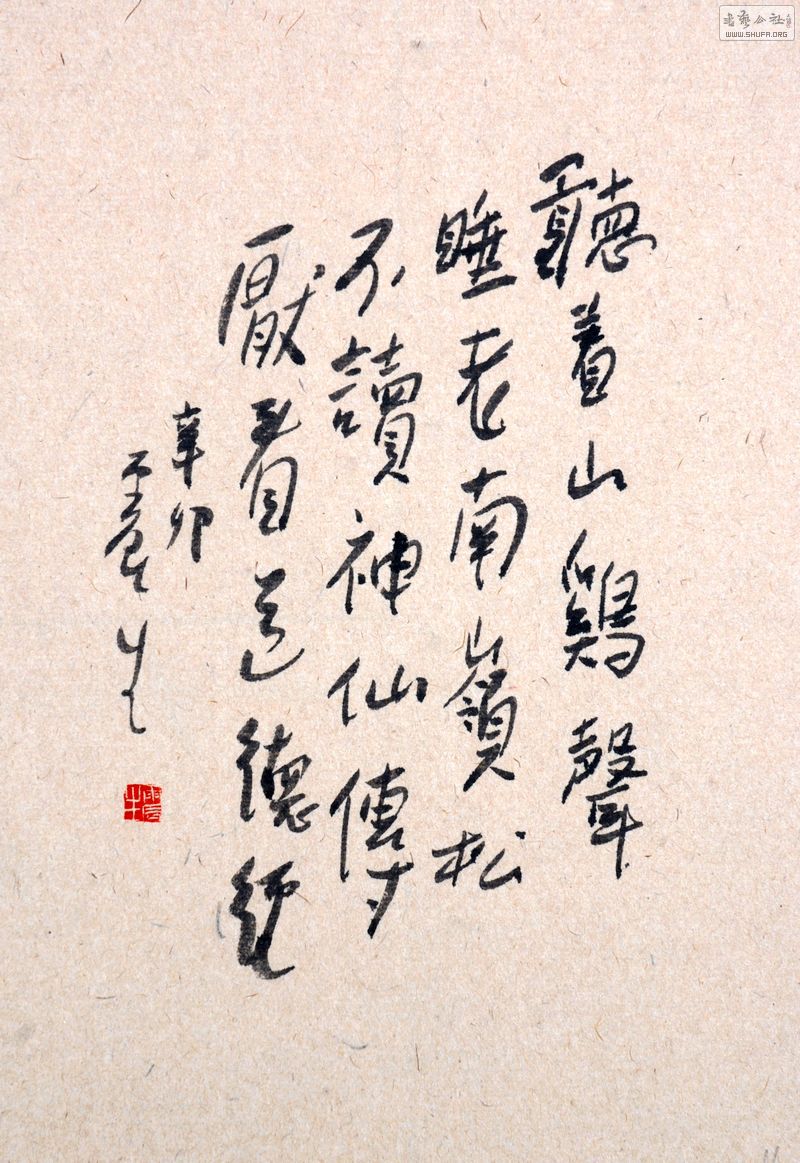 聽着山鷄聲
睡老南嶺松
不讀神仙傳
厭看道德經
辛卯
震生
WWW.SHUFA.ORG